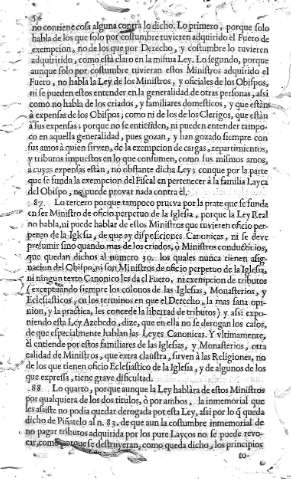 no contiene cosa alguna contra lo dicho. Lo primero, porque solo
habla de los que solo por costumbre tuvieren adquirido el Fuero de
exempcion, no de los que por Derecho, y costumbre lo tuvieren
adquirido, como està claro en la misma Ley. Lo segundo, porque
aunque solo por costumbre tuvieran estos Ministros adquirido el
Fuero, no habla la Ley de los Ministros, y oficiales de los Obispos,
ni se pueden estos entender en la generalidad de otras personas, assi
como no habla de los criados, y familiares domesticos, y que estàn
à expensas de los Obispos; como ni de los de los Clerigos, que estàn
à sus expensas; porque no se entienden, ni pueden entender tampo-
co en aquella generalidad, pues gozan, y han gozado siempre con
sus amos à quien sirven, de la exempcion de cargas, repartimientos,
y tributos impuestos en lo que consumen, como sus mismos amos,
à cuyas expensas estàn, no obstante dicha Ley; conque por la parte
que se funda la exempcion del Fiscal en pertenecer à la familia Layca
del Obispo, no puede provar nada contra él.
87. Lo tercero porque tampoco prueva por la parte que se funda
en ser Ministro de oficio perpetuo de la Iglesia, porque la Ley Real
no habla, ni puede hablar de estos Ministros que tuvieren oficio per-
petuo de la Iglesia, de que ay disposiciones Canonicas, ni se deve
presumir sino quando mas de los criados, ò Ministros conducticios,
que quedan dichos al numero 30. los quales nunca tienen asig-
nacion del Obispo, ni son Ministros de oficio perpetuo de la Iglesia,
ni ningun texto Canonico les dà el Fuero, ni exempcion de tributos
(exceptuando siempre los colonos de las Iglesias, Monasterios, y
Eclesiasticos, en los terminos en que el Derecho, la mas sana opi-
nion, y la practica, les concede la libertad de tributos) y assi expo-
niendo esta Ley Azebedo, dize, que en ella no se derogan los casos,
de que especialmente hablan las Leyes Canonicas. Y vltimamente,
si entiende por estos familiares de las Iglesias, y Monasterios, otra
calidad de Ministros, que extra claustra, sirven à las Religiones, no
de los que tienen oficio Eclesiastico de la Iglesia, y de algunos de los
que expressa, tiene grave dificultad.
88. Lo quarto, porque aunque la Ley hablàra de estos Ministros
por qualquiera de los dos titulos, ò por ambos, la inmemorial que
les assiste no podia quedar derogada por esta Ley, assi por lo que queda
dicho de Piñatelo al n. 83. de que aun la costumbre inmemorial de
no pagar tributos adquirida por los pure Laycos no se puede revo-
car, como porque se destruyeran, como queda dicho, los principios